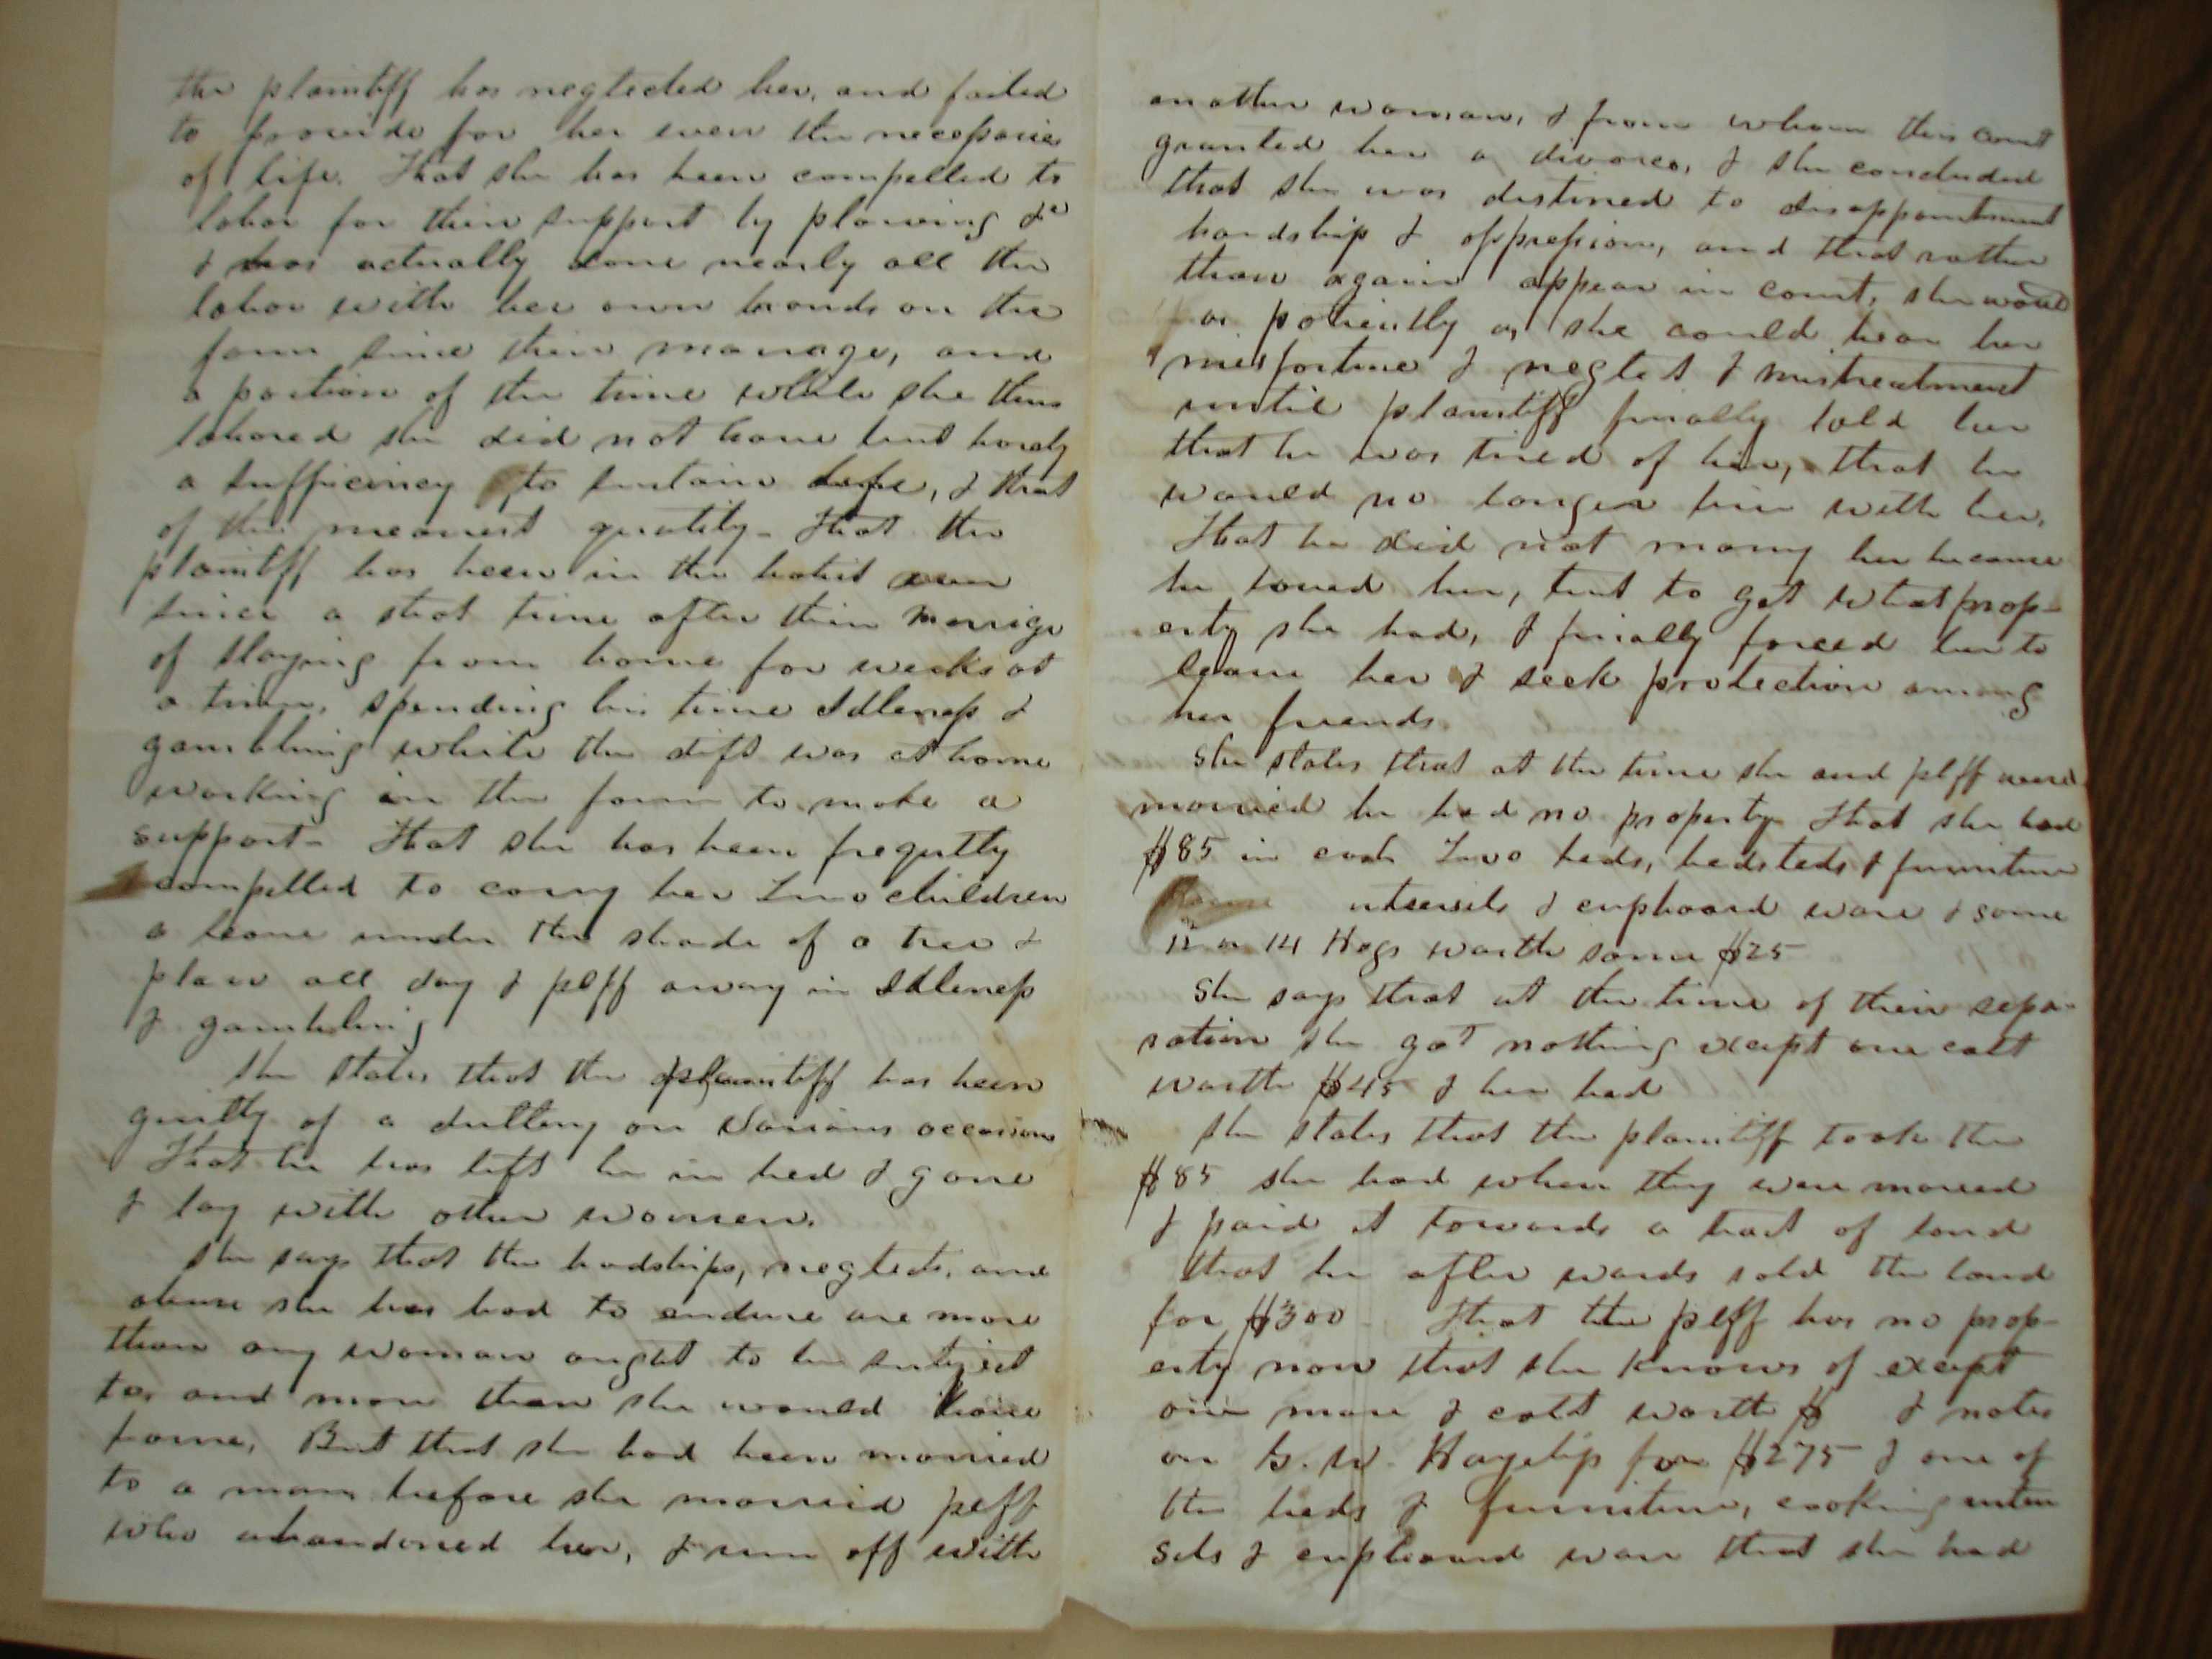 the plaintiff has neglected her, and failed
to provide for her even the necessaries
of life. That she has been compelled to
labor for their support by plowing &c
& has actually done nearly all the
labor with her own hands on the
farm since their marriage, and
a portion of the time while she thus
labored she did not have but barely
a sufficiency to sustain life, & that
of the meanest quality - That the
plaintiff has been in the habit ever
since a shot time after their marrige
of staying from home for weeks at
a time, spending his time Idleness &
gambling while the dift was at home
working in the farm to make a
support - That she has been frequtly
compelled to carry her Two children
a leave under the shade of a tree &
plaw all day & plff away in Idleness
& gambling
She states that the plaintiff has been
guilty of a dultery on Various occasions
That he has left her in bed & gone
& lay with other women.
She says that the hadships, neglects, and
abuse she has had to endure are more
than any woman ought to be subject
to, and more than she would have
borne, But that she had been married
to a man before she married plff
who abandoned her, & run off with
another woman, & from whom this court
granted her a divorce, & she concluded
that she was destined to disappointment
hardship & oppression, and that rather
than again appear in court, she would
as patiently as she could bear her
misfortune & neglect & mistreatment
until plaintiff finally told her
that he was tired of her, that he
would no longer live with her,
That he did not marry her because
he loved her, but to get what prop-
erty she had, & finally forced her to
leave her & seek protection among
her friends
She states that at the time she and plff were
married he had no property That she had
$85 in cash Two beds, bedsteds & furniture
utensils & cupboard ware & some
12 or 14 Hogs worth some $25
She says that at the time of their sepa-
ration she got nothing except one colt
worth $45 & her bed
She states that the plaintiff took the
$85 she had when they were married
& paid it towards a tract of land
that he after wards sold the land
for $300 That the plff has no prop-
erty now that she knows of except
one mare & colt worth $ & notes
on G. W. Hayslip for $275 & one of
the beds & furniture, cooking uten
sels & cupboard ware that she had